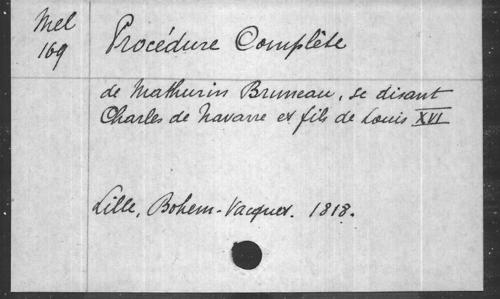 Mel
169
Procédure Complète
de Mathurin Bruneau, se disant
Charles de Navarre et fils de Louis XVI
Lille, Bohem-Vacquez. 1818.